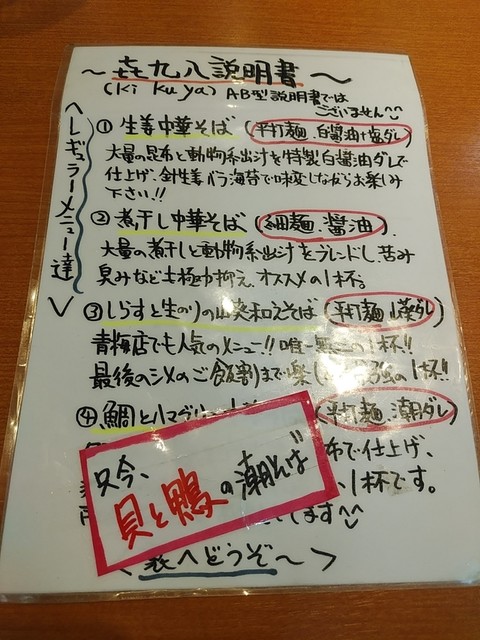 ～㐂九八説明書～
(ki ku ya) AB型説明書では
ございません^^
＜レギュラーメニュー達＞
① 生姜中華そば (平打麺 白醤油+塩ダレ)
大量の昆布と動物系出汁を特製白醤油ダレで
仕上げ、針生姜、バラ海苔で味変しながらお楽しみ
下さい!!
② 煮干し中華そば (細麺、醤油)
大量の煮干しと動物系出汁をブレンドし、苦み
臭みなども極力抑え、オススメの1杯。
③ しらすと生のりの山葵和えそば (平打麺 山葵ダレ)
青梅店でも人気のメニュー!! 唯一の1杯!!
最後のシメのご飯割まで楽し の1杯!!
④ 鯛とハマグリ (平打麺、潮ダレ)
布で仕上げ、
、1杯です。
ます^^
只今、
貝と鴨の潮そば
＜裏へどうぞ～＞